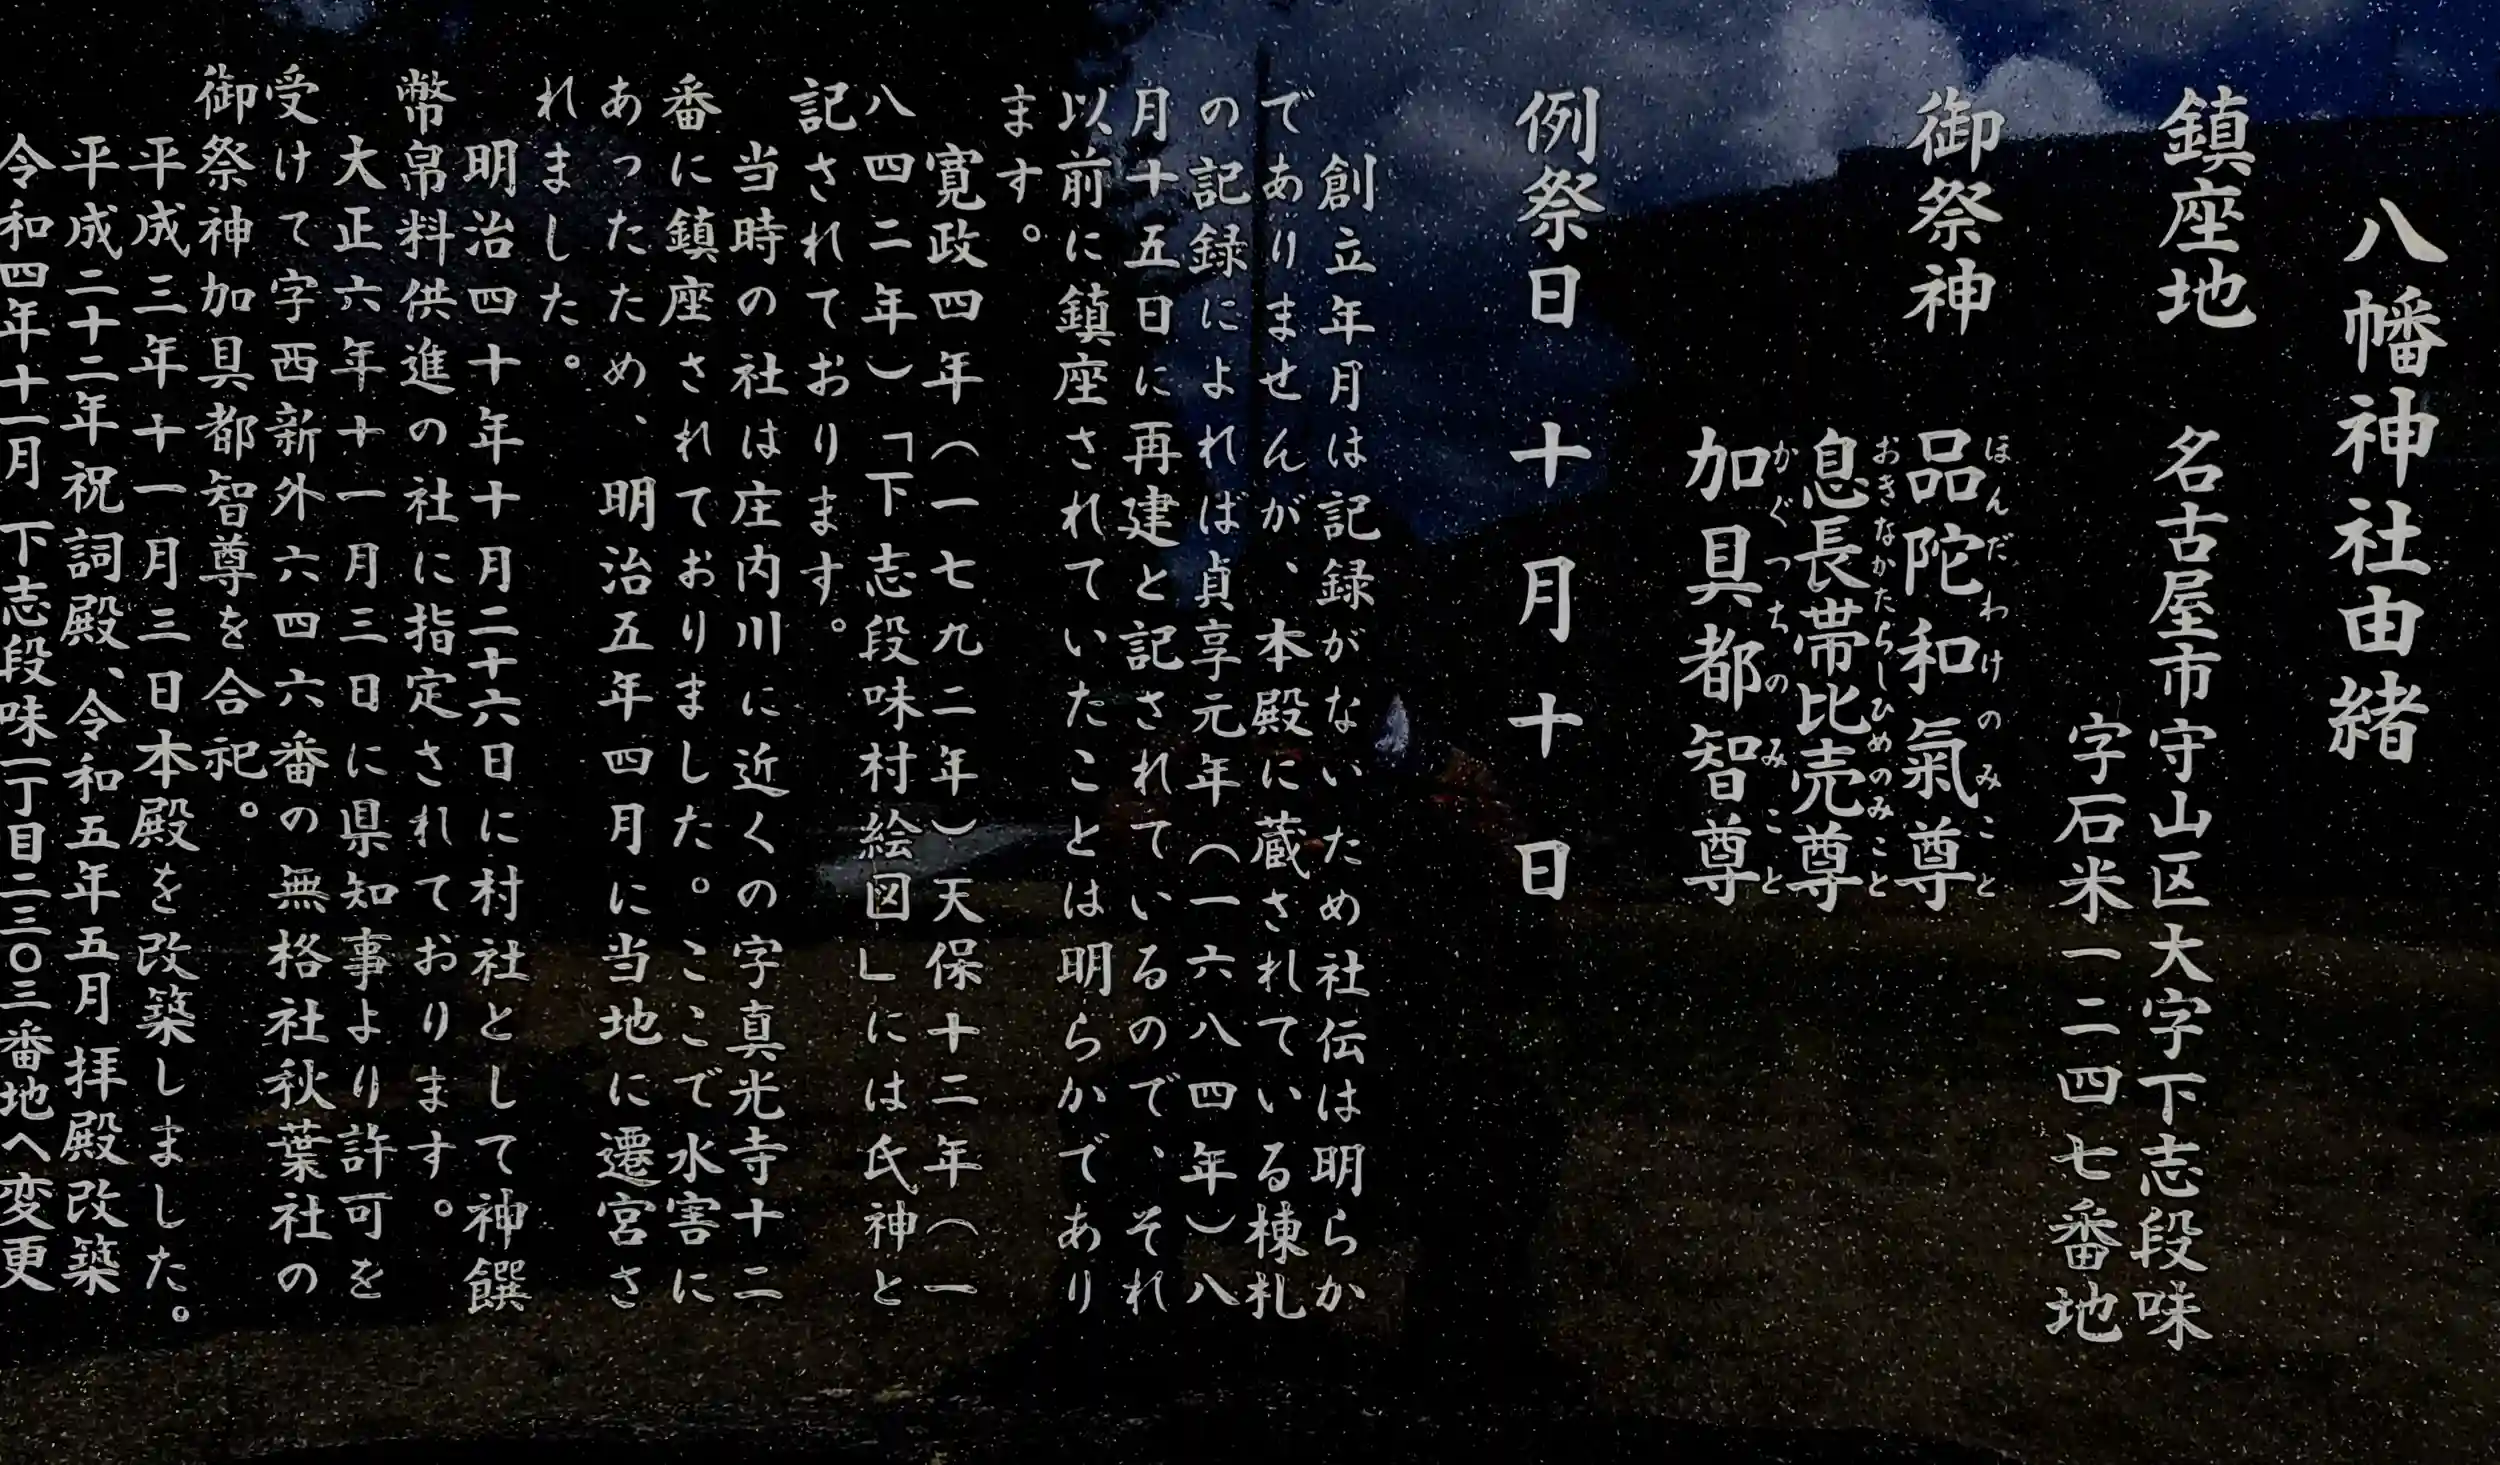 八幡神社由緒
鎮座地　名古屋市守山区大字下志段味
字石米一二四七番地
御祭神　品陀和氣尊
ほんだわけのみこと
息長帯比売尊
おきながたらしひめのみこと
加具都智尊
かぐつちのみこと
例祭日　十月十日
創立年月は記録がないため社伝は明らか
でありませんが、本殿に蔵されている棟札
の記録によれば貞享元年（一六八四年）八
月十五日に再建と記されているので、それ
以前に鎮座されていたことは明らかであり
ます。
寛政四年（一七九二年）天保十二年（一
八四二年）「下志段味村絵図」には氏神と
記されております。
当時の社は庄内川に近くの字真光寺十二
番に鎮座されておりました。ここで水害に
あったため、明治五年四月に当地に遷宮さ
れました。
明治四十年十月二十六日に村社として神饌
幣帛料供進の社に指定されております。
大正六年十一月三日に県知事より許可を
受けて字西新外六四六番の無格社秋葉社の
御祭神加具都智尊を合祀。
平成三年十一月三日本殿を改築しました。
平成二十二年祝詞殿、令和五年五月拝殿改築
令和四年十一月下志段味一丁目二三〇三番地へ変更